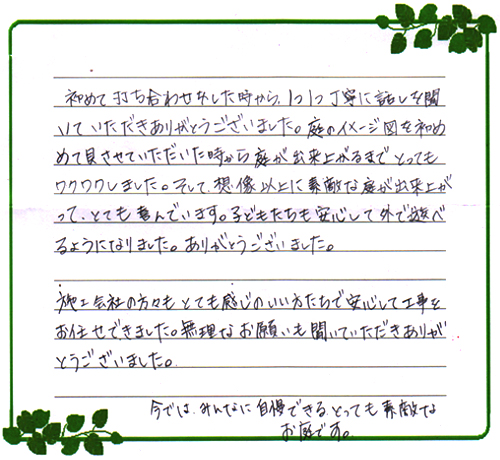 初めて打ち合わせをした時から、1つ1つ丁寧に話しを聞
いていただきありがとうございました。庭のイメージ図を初め
めて見させていただいた時から庭が出来上がるまでとっても
ワクワクしました。そして、想像以上に素敵な庭が出来上が
って、とても喜んでいます。子どもたちも安心して外で遊べ
るようになりました。ありがとうございました。
施工会社の方々もとても感じのいい方たちで安心して工事を
お任せできました。無理なお願いも聞いていただきありが
とうございました。
今では、みんなに自慢できる、とっても素敵な
お庭です。